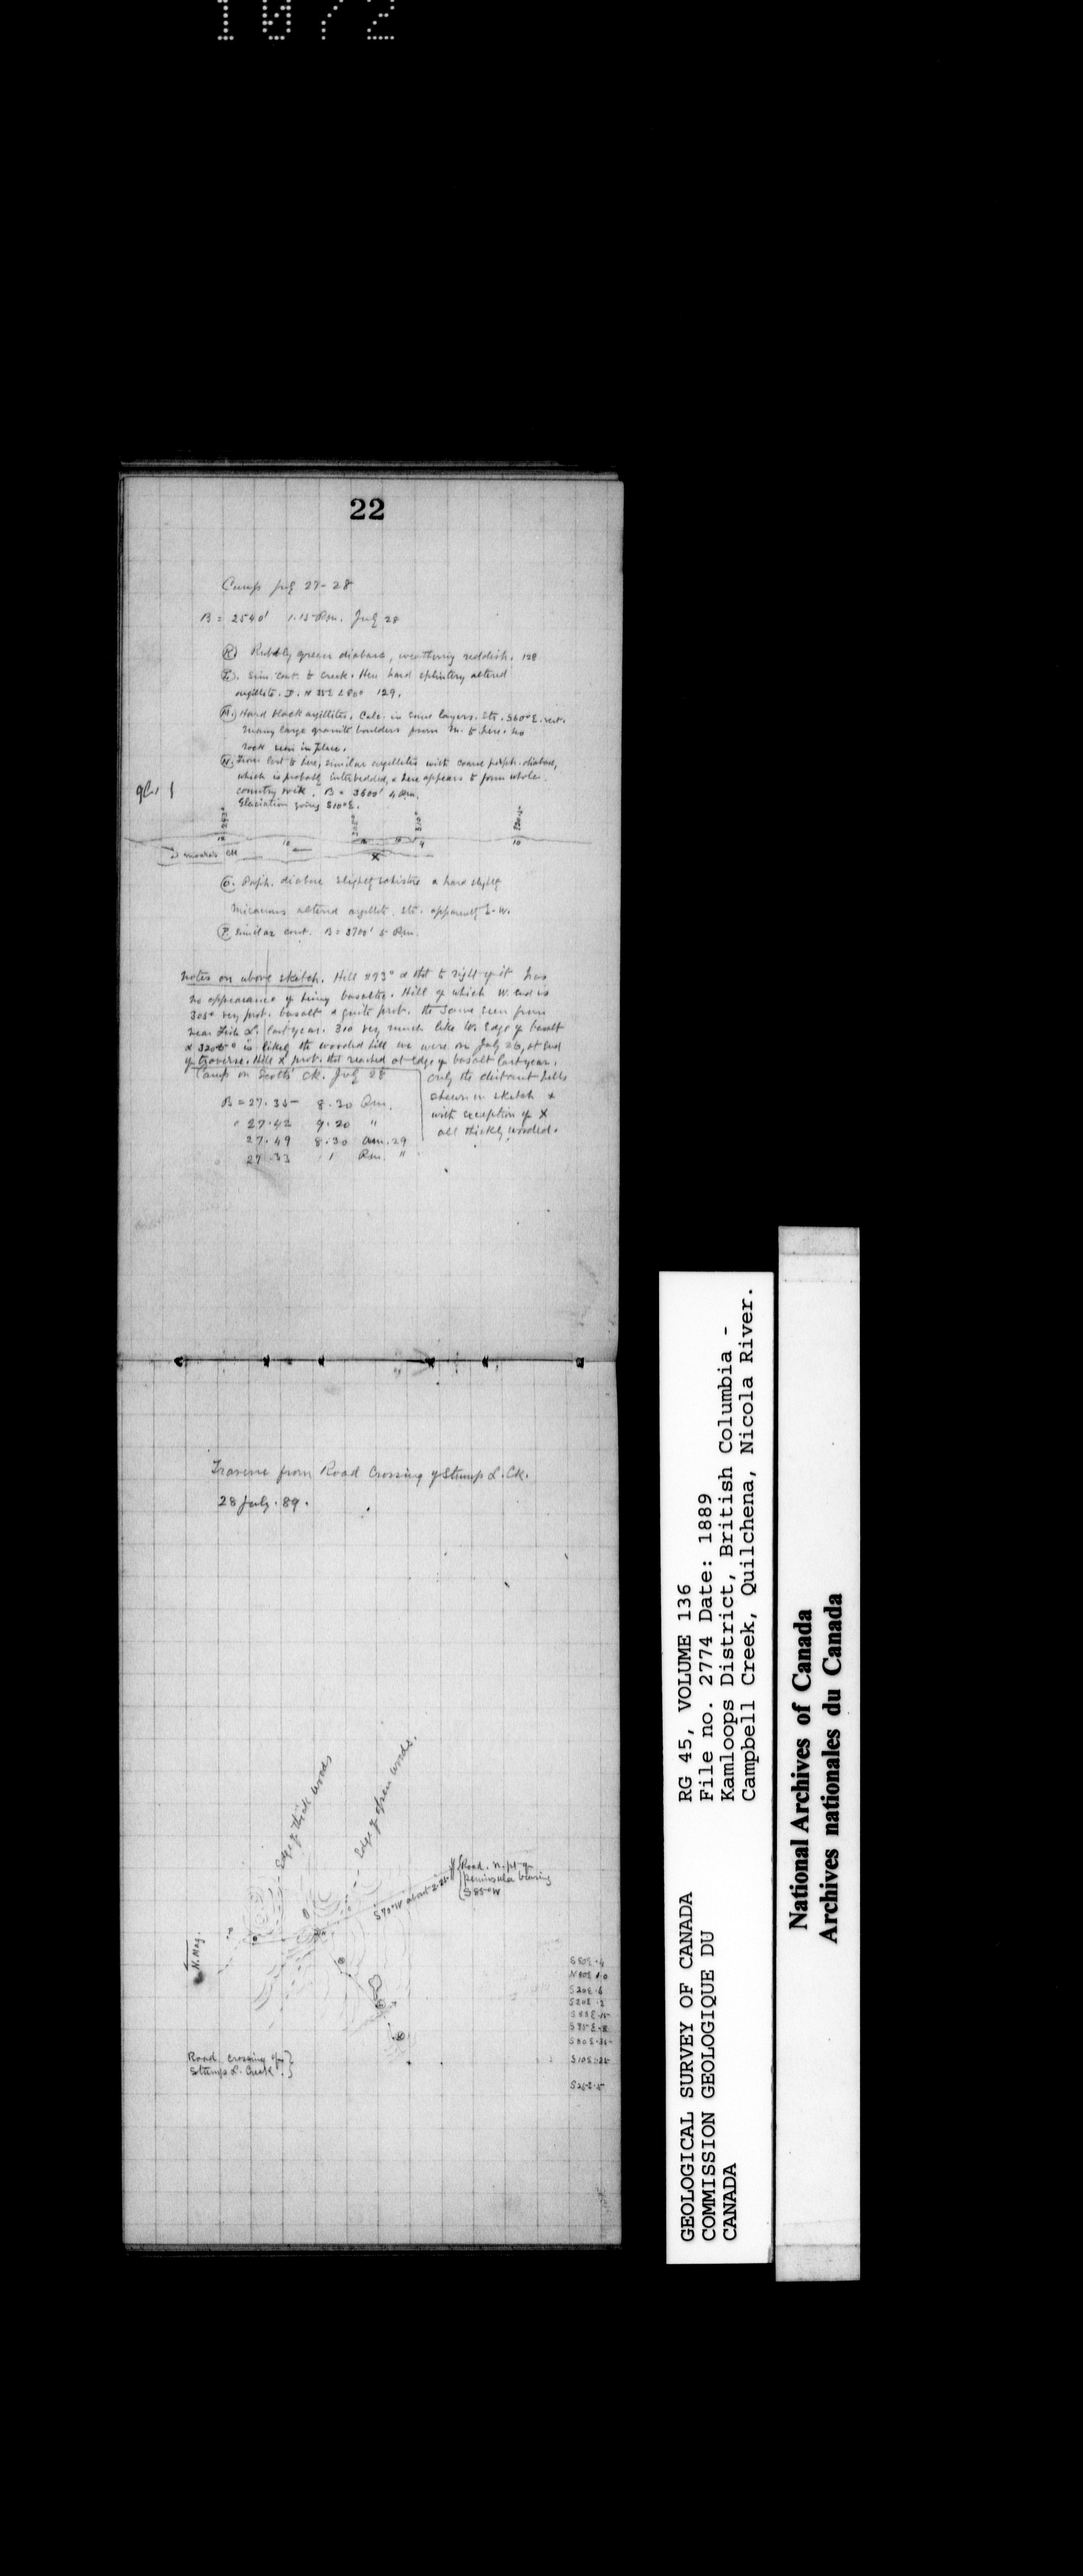 1072
22
Camp July 27-28
B = 2540' 1.15 P.m. July 28
K. Rubbly green diabase, weathering reddish. 128
L. Sim. cont. to creek. Here hard splintery altered
argillite. N 35 E < 80° 129.
M. Hard black argillites. Calc. in some layers. Str. S60°E. vert.
many large granite boulders from M. to here. no
rock seen in place.
N. From last to here, similar argillites with coarse porph. diabase,
which is probably interbedded, & here appears to form whole
country rock. B = 3600' 4 P.m.
Glaciation going S10°E.
293° 305° 310° 320.5°
12 10 10 9 10
X
O. Porph. diabase slightly schistose & hard slightly
micaceous altered argillite. Str. apparently E-W.
P. Similar cont. B = 3700' 5 P.m.
Notes on above sketch. Hill 293° & that to right of it has
no appearance of being basaltic. Hill of which W. end is
305° very prob. basalt & quite prob. the same seen from
near Fish L. last year. 310 very much like W. edge of basalt
& 320.5° is likely the wooded hill we were on July 26, at end
of traverse. Hill X prob. that reached at edge of basalt last year.
Camp on Scotts' Ck. July 28
B = 27.35 8.30 P.m.
" 27.42 9.20 "
27.49 8.30 am. 29
27.33 1 P.m. "
only the distant hills
shewn in sketch &
with exception of X
all thickly wooded.
Traverse from Road Crossing of Stump L. Ck.
28 July. 89.
Edge of thick woods
Edge of open woods.
S70°W about 2.25
Road. N. pt. of
peninsula bearing
S85°W
N. Mag.
P
O
Road crossing of
Stump L. Creek
S80E.4
N80E 1.0
S20E.6
S20E.2
S85E.15
S35E.8
S80E.35
S10E.25
S26E.5
GEOLOGICAL SURVEY OF CANADA
COMMISSION GEOLOGIQUE DU
CANADA
RG 45, VOLUME 136
File no. 2774 Date: 1889
Kamloops District, British Columbia -
Campbell Creek, Quilchena, Nicola River.
National Archives of Canada
Archives nationales du Canada